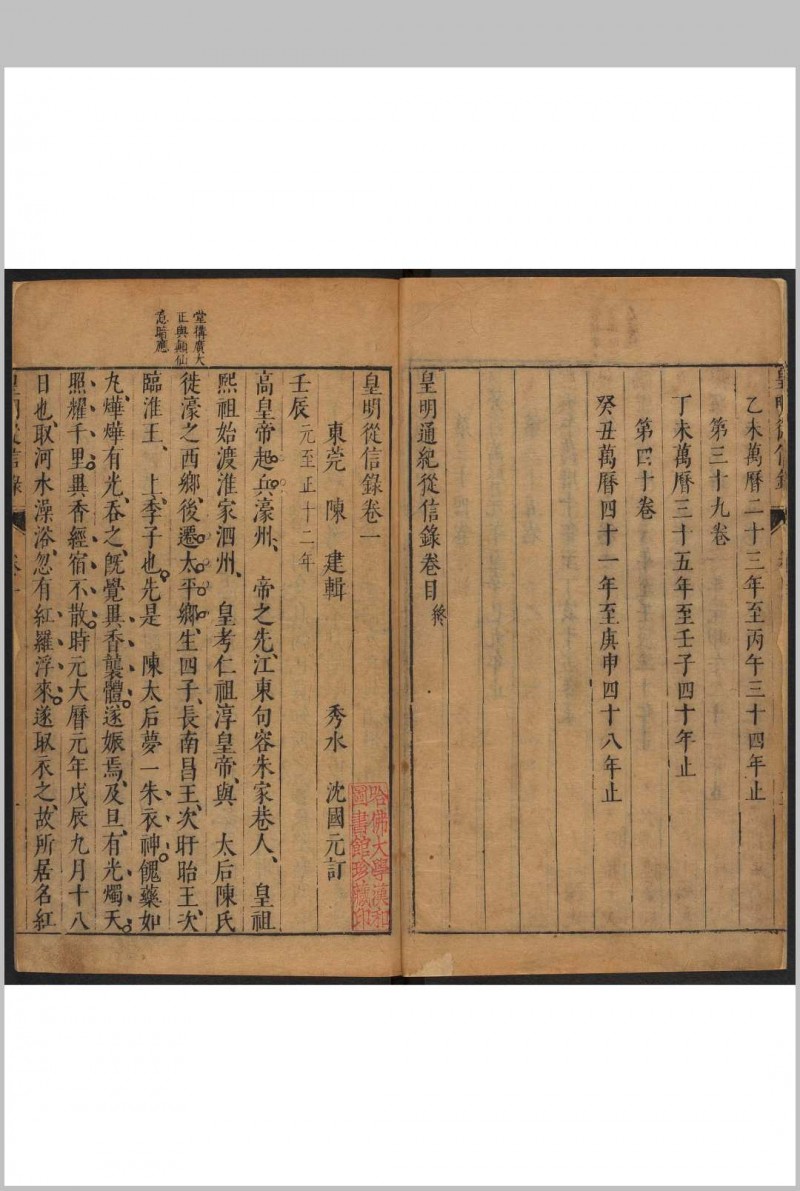 乙未萬曆二十三年至丙午三十四年止
第三十九卷
丁未萬曆三十五年至壬子四十年止
第四十卷
癸丑萬曆四十一年至庚申四十八年止
皇明通紀從信錄卷目終
皇明從信錄卷一
東莞 陳 建輯 秀水 沈國元訂
壬辰元至正十二年
高皇帝起兵濠州、 帝之先、江東句容朱家巷人、 皇祖
熙祖始渡淮家泗州、 皇考仁祖淳皇帝、與 太后陳氏
徙濠之西鄉、後遷太平鄉、生四子、長南昌王、次盱眙王、次
臨淮王、 上季子也。先是 陳太后夢一朱衣神。餽藥如
丸、燁燁有光、吞之、既覺異香襲體。遂娠焉、及旦、有光燭天。
照耀千里。異香經宿不散。時元大曆元年戊辰九月十八
日也、取河水澡浴、忽有紅羅浮來。遂取衣之、故所居名紅
堂構廣大
正與顛仙
哈佛大學漢和
圖書館珍藏印
皇明從信錄